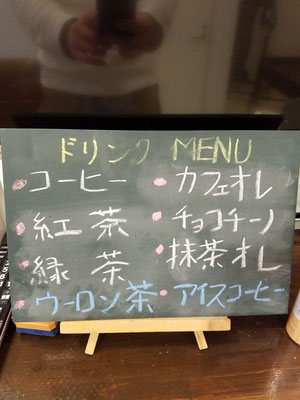 ドリンク MENU
コーヒー
紅茶
緑茶
ウーロン茶
カフェオレ
チョコチーノ
抹茶オレ
アイスコーヒー